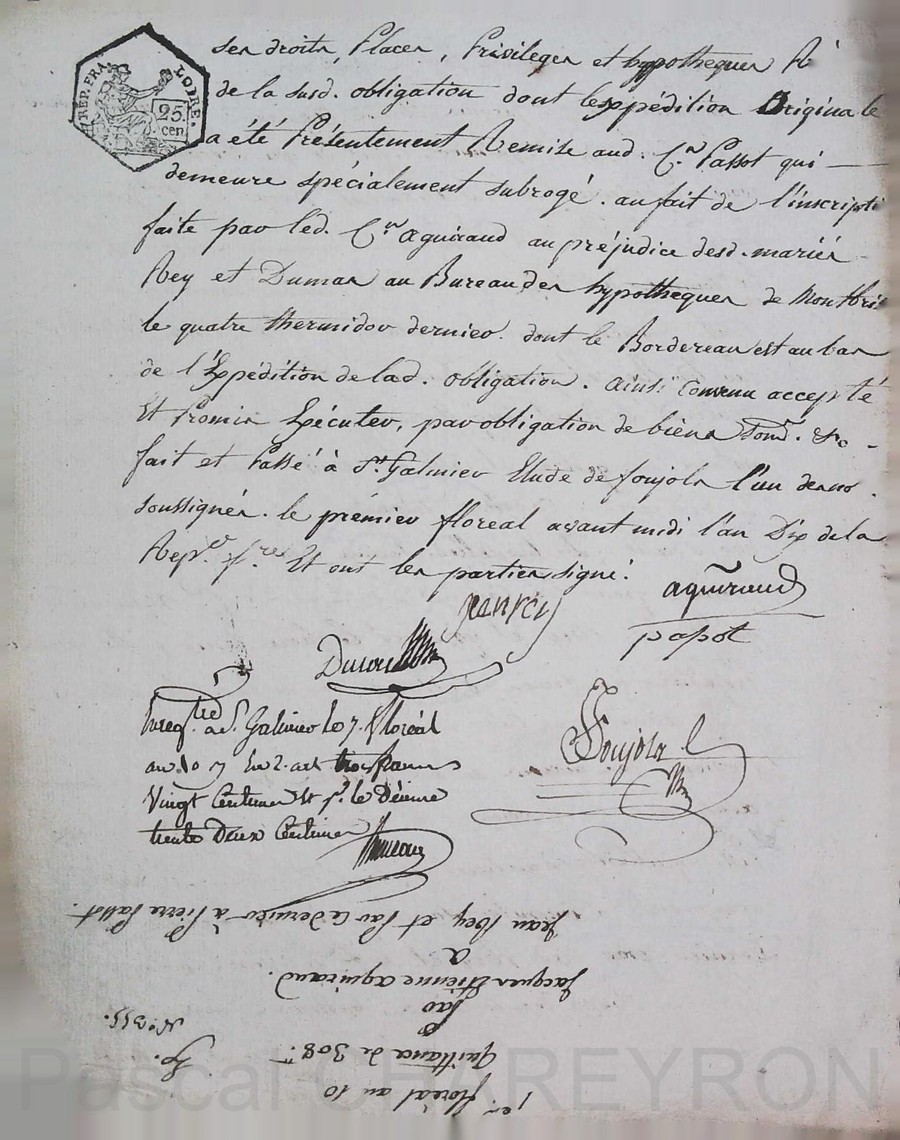 REP. FRA.
LOIRE.
25.
cen.
ses droits, Places, Privileges et hypotheques Ré
de la susd. obligation dont lexpédition Originale
a été Présentement Remise aud. C.en Passot qui
demeure spécialement subrogé. au fait de l'inscripti
faite par led. C.en aguiraud au préjudice desd. mariés
Rey et Dumas au Bureau des hypotheques de Montbris
le quatre thermidor dernier. dont le Bordereau est au bas
de l'Expédition de lad. obligation. ainsi convenu accepté
Et Promis Exécuter, par obligation de biens Soud. &c -
fait et Passé à St. Galmier Etude de foujols l'un de nos.
soussignés. le prémier floreal avant midi l'an Dix de la
Rep.e f.se Et ont les parties signé.
jean rey
aguiraud
papot
Foujols
Enreg.tré a St. Galmier le 7. floréal
an 10 trois francs
Vingt Centimes Et pr. le Décime
trente Deux Centimes
1er floréal an 10
Quittance de 308.
N.o 355.
Par
Jacques Etienne aguiraud.
a
Jean Rey et Par Ce dernier à Pierre Passot.
Pascal CHAREYRON